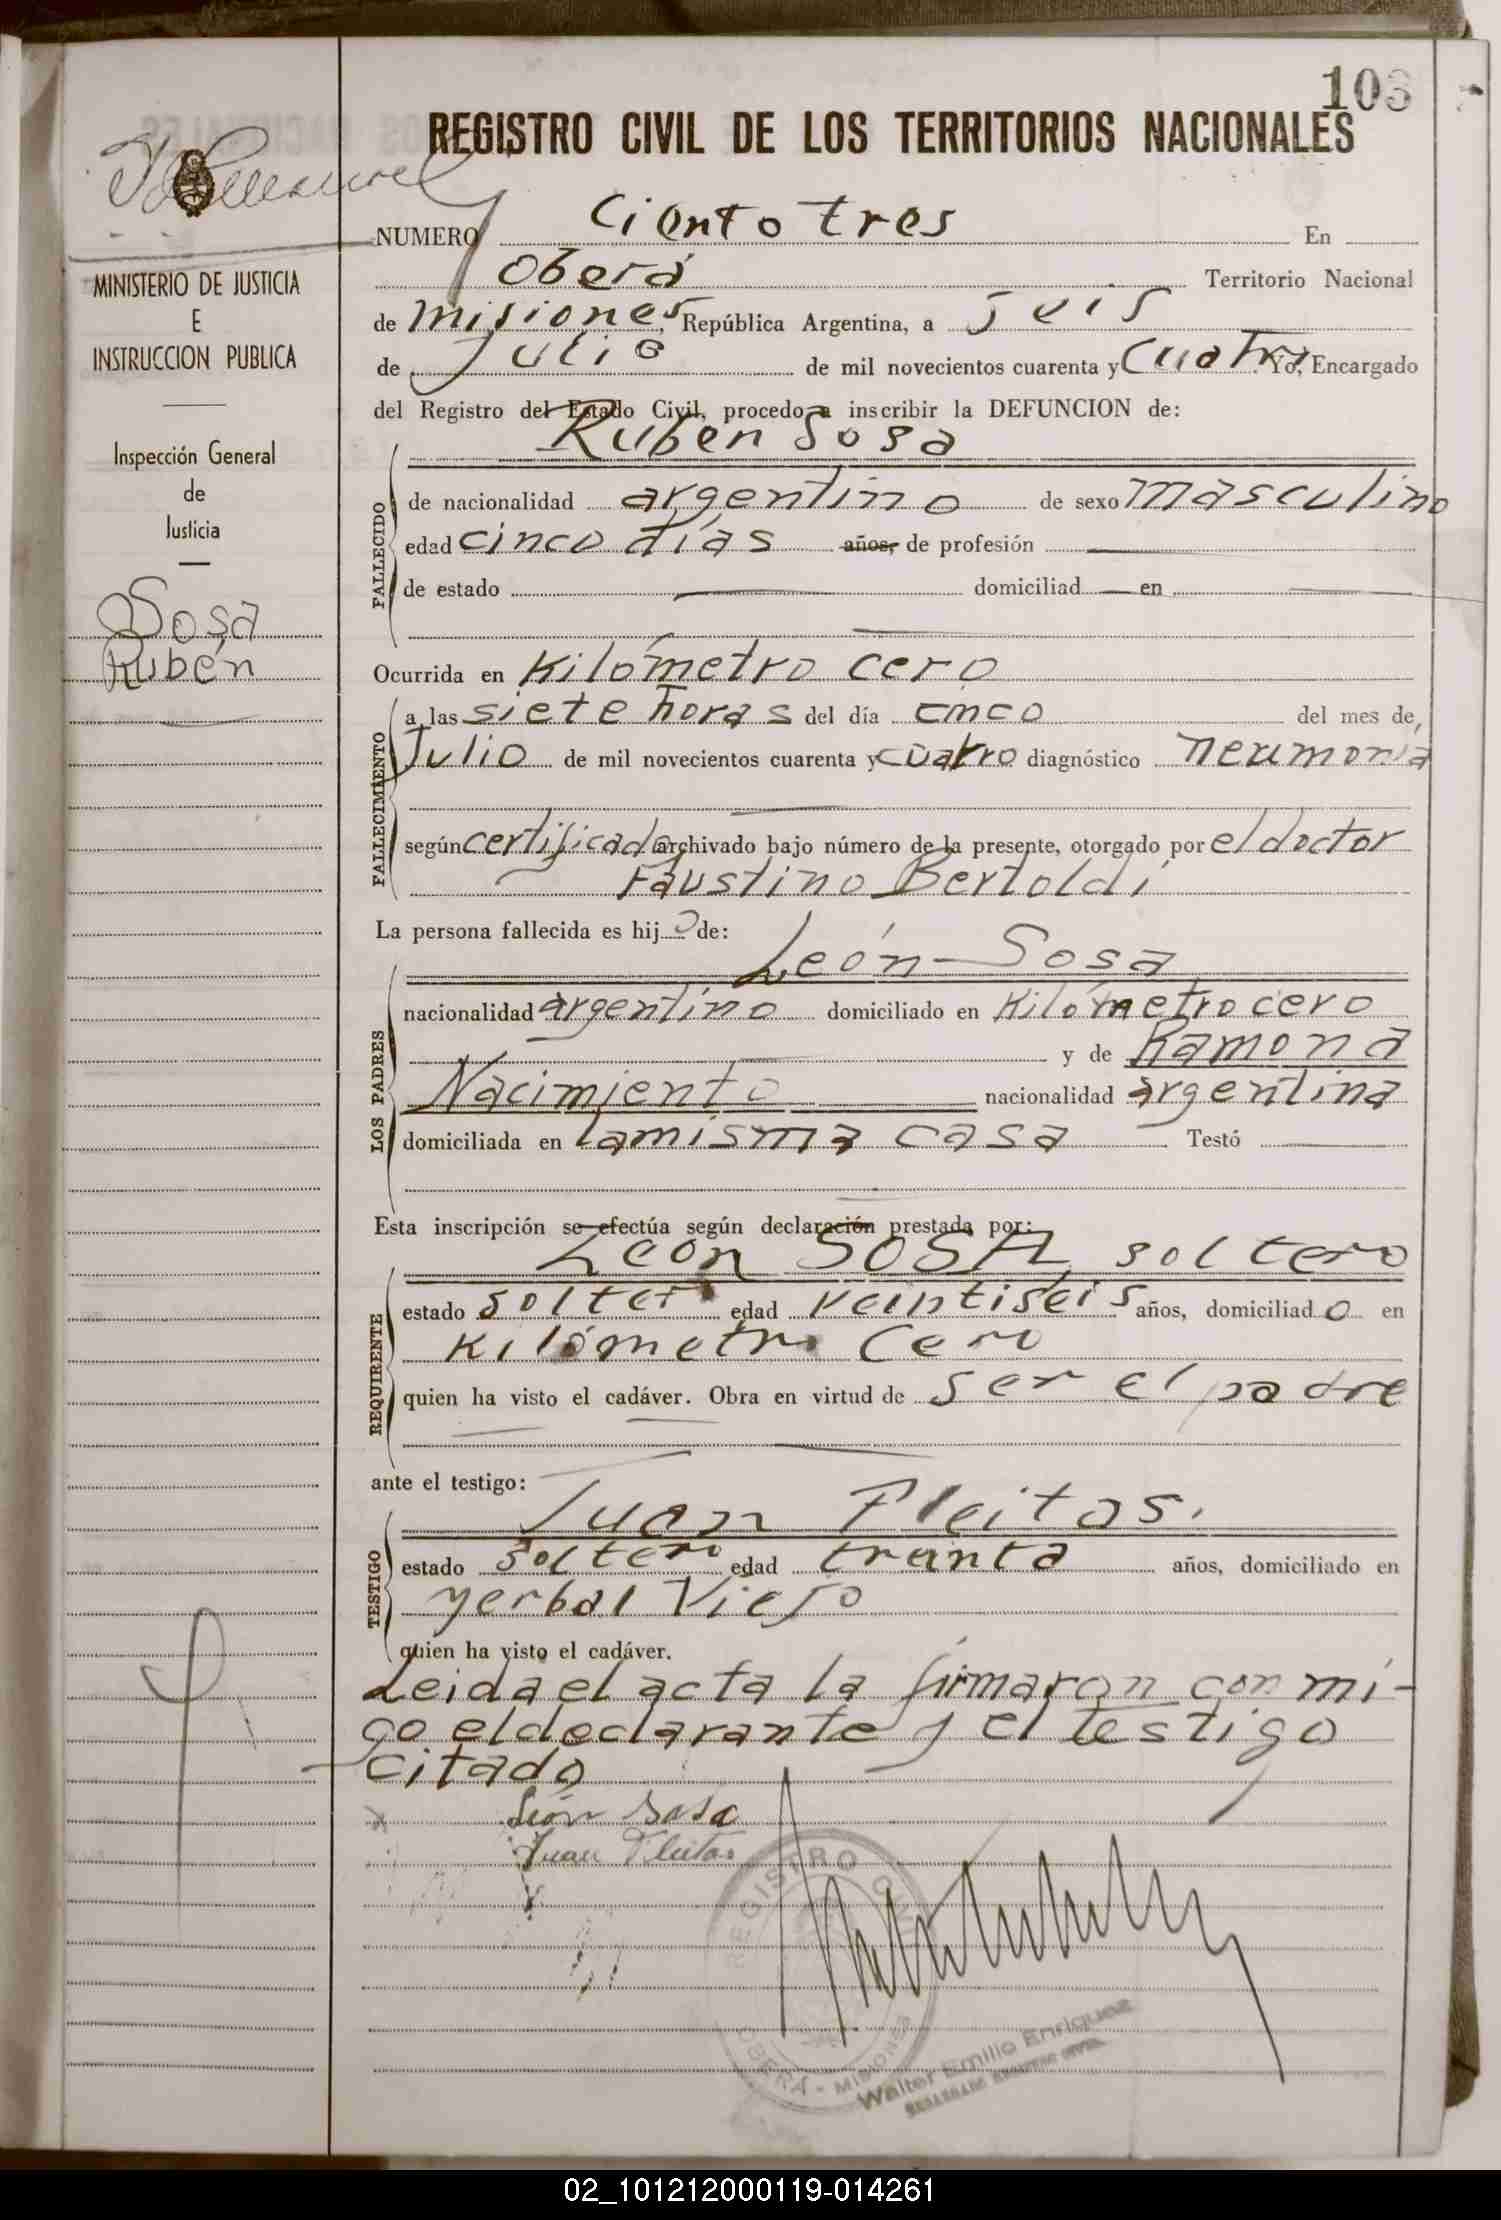 103
REGISTRO CIVIL DE LOS TERRITORIOS NACIONALES
MINISTERIO DE JUSTICIA
E
INSTRUCCION PUBLICA
Inspección General
de
Justicia
Sosa
Rubén
NUMERO Ciento tres En
Oberá Territorio Nacional
de Misiones, República Argentina, a seis
de Julio de mil novecientos cuarenta y cuatro. Yo, Encargado
del Registro del Estado Civil, procedo a inscribir la DEFUNCION de:
Rubén Sosa
FALLECIDO
de nacionalidad argentino de sexo masculino
edad cinco días años, de profesión
de estado domiciliad en
Ocurrida en Kilómetro cero
FALLECIMIENTO
a las siete horas del día cinco del mes de
Julio de mil novecientos cuarenta y cuatro diagnóstico neumonía
según certificado archivado bajo número de la presente, otorgado por el doctor
Faustino Bertoldi
La persona fallecida es hijo de:
León Sosa
LOS PADRES
nacionalidad argentino domiciliado en Kilómetro cero
y de Ramona
Nacimiento nacionalidad argentina
domiciliada en la misma casa Testó
Esta inscripción se efectúa según declaración prestada por:
León SOSA soltero
REQUIRENTE
estado soltero edad veintiseis años, domiciliado en
Kilómetro Cero
quien ha visto el cadáver. Obra en virtud de ser el padre
ante el testigo:
Juan Fleitas.
TESTIGO
estado soltero edad treinta años, domiciliado en
yerbal Viejo
quien ha visto el cadáver.
Leida el acta la firmaron conmi-
go el declarante y el testigo
citado
León Sosa
Juan Fleitas
REGISTRO CIVIL
OBERÁ - MISIONES
Walter Emilio Enriquez
ENCARGADO REGISTRO CIVIL
02_101212000119-014261